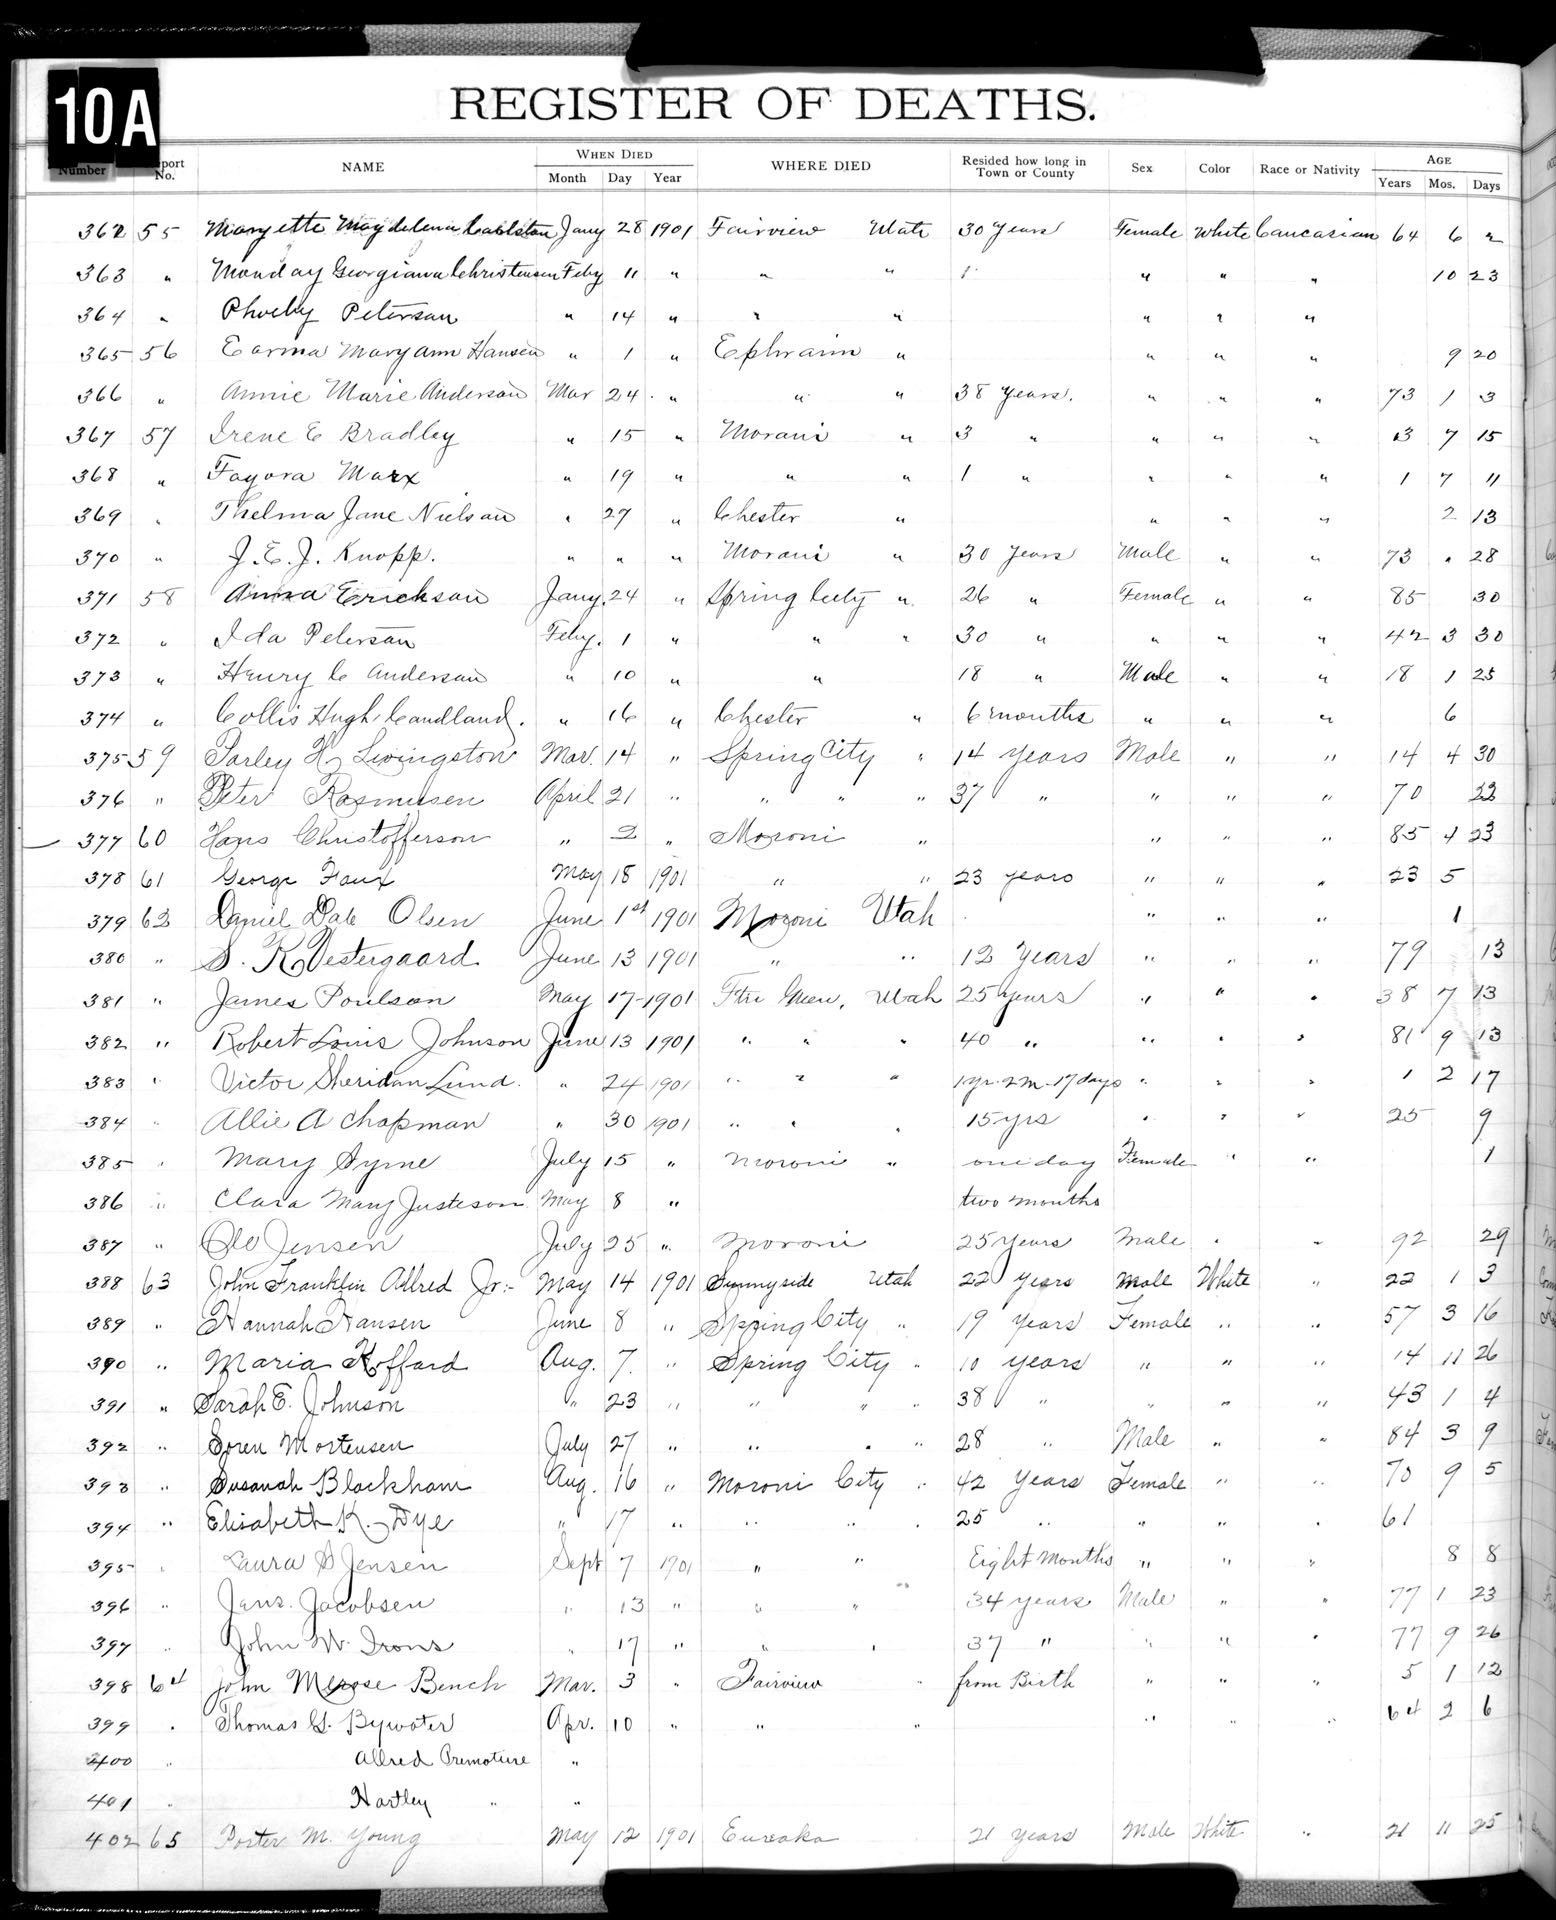 10A
REGISTER OF DEATHS.
Number port No. NAME WHEN DIED Month Day Year WHERE DIED Resided how long in Town or County Sex Color Race or Nativity AGE Years Mos. Days
362 55 Maryette Magdelena Carlston Jany 28 1901 Fairview Utah 30 Years Female White Caucasian 64 6 2
363 " Monday Georgiana Christensen Feby 11 " " " 1 " " " 10 23
364 " Phoeby Peterson " 14 " " " " " "
365 56 Earma Maryann Hansen " 1 " Ephraim " " " " 9 20
366 " Annie Marie Anderson Mar 24 " " " 38 Years. " " " 73 1 3
367 57 Irene E Bradley " 15 " Moroni " 3 " " " " 3 7 15
368 " Fayora Marx " 19 " " " 1 " " " " 1 7 11
369 " Thelma Jane Nielson " 27 " Chester " " " " 2 13
370 " J. E. J. Knopp. " " " Moroni " 30 Years Male " " 73 " 28
371 58 Anna Erickson Jany. 24 " Spring City " 26 " Female " " 85 30
372 " Ida Peterson Feby. 1 " " " 30 " " " " 42 3 30
373 " Henry C Anderson " 10 " " 18 " Male " " 18 1 25
374 " Collis Hugh Candland. " 16 " Chester " 6 months " " " 6
375 59 Parley H Livingston Mar. 14 " Spring City " 14 years Male " " 14 4 30
376 " Peter Rasmussen April 21 " " " " 37 " " " " 70 22
377 60 Hans Christofferson " 2 " Moroni " " " " 85 4 23
378 61 George Faux May 18 1901 " " 23 years " " " 23 5
379 62 Daniel Dale Olsen June 1st 1901 Moroni Utah " " " 1
380 " S. K Vestergaard June 13 1901 " " 12 Years " " " 79 13
381 " James Poulson May 17 1901 Ftn Green, Utah 25 years " " " 38 7 13
382 " Robert Louis Johnson June 13 1901 " " " 40 " " " " 81 9 13
383 " Victor Sheridan Lund. " 24 1901 " " " 1 yr. 2 m - 17 days " " " 1 2 17
384 " Allie A Chapman " 30 1901 " " " 15 yrs " " " 25 9
385 " Mary Syme July 15 " Moroni " one day Female " " 1
386 " Clara Mary Justeson May 8 " two months
387 " Ole Jensen July 25 " Moroni 25 years Male " " 92 29
388 63 John Franklin Allred Jr:- May 14 1901 Sunnyside Utah 22 years Male White " 22 1 3
389 " Hannah Hansen June 8 " Spring City " 19 Years Female " " 57 3 16
390 " Maria Kofford Aug. 7. " Spring City " 10 years " " " 14 11 26
391 " Sarah E. Johnson " 23 " " " " 38 " " " " 43 1 4
392 " Soren Mortensen July 27 " " " " 28 " Male " " 84 3 9
393 " Susanah Blackham Aug. 16 " Moroni City " 42 Years Female " " 70 9 5
394 " Elisabeth K. Dye " 17 " " " " 25 " " " " 61
395 " Laura S Jensen Sept 7 1901 " " Eight Months " " " 8 8
396 " Jens. Jacobsen " 13 " " " 34 years Male " " 77 1 23
397 " John W. Irons " 17 " " " 37 " " " " 77 9 26
398 64 John Bench Mar. 3 " Fairview " from Birth " " " 5 1 12
399 " Thomas G. Bywater Apr. 10 " " " " " " 64 2 6
400 " Allred Premature "
401 " Hartley " "
402 65 Porter M. Young May 12 1901 Eureaka 21 years Male White " 21 11 25